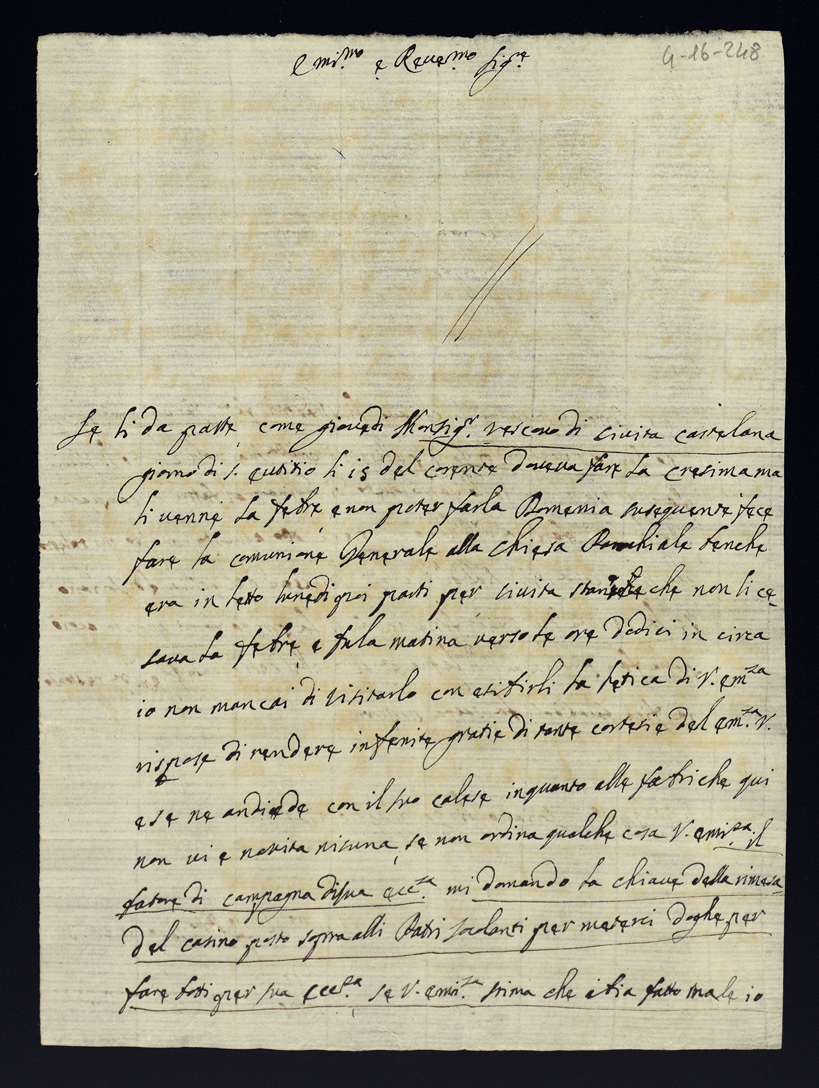 4-16-248
Emi.mo e Reue.mo Sig.re
Se li da parte come giouedi Monsig.r vescouo di ciuita castelana
giorno di s. eutitio li 15 del corente doveva fare la cresima ma
li venne la febre, e non poter farla Domenia susequente fece
fare la comunione Generale alla chiesa Parochiale benche
era in letto lunedi poi parti per ciuita che non li ce
saua la febre, e fu la matina verso le ore dodici in circa
io non mancai di visitarlo con esibirli la letica di V. em.za
rispose di rendere infenite gratie di tante cortesie del em.za V.
e se ne andiede con il suo calese inquanto alle fabriche qui
non vi e novita nisuna, se non ordina qualche cosa V. emi.za il
fatore di campagna di sua ecc.za mi domando la chiave della rimesa
del casino posto sopra alli Patri Scolenti per meterci doghe per
fare botti per sua ecc.za se V. emi.za stima che abia fatto male io